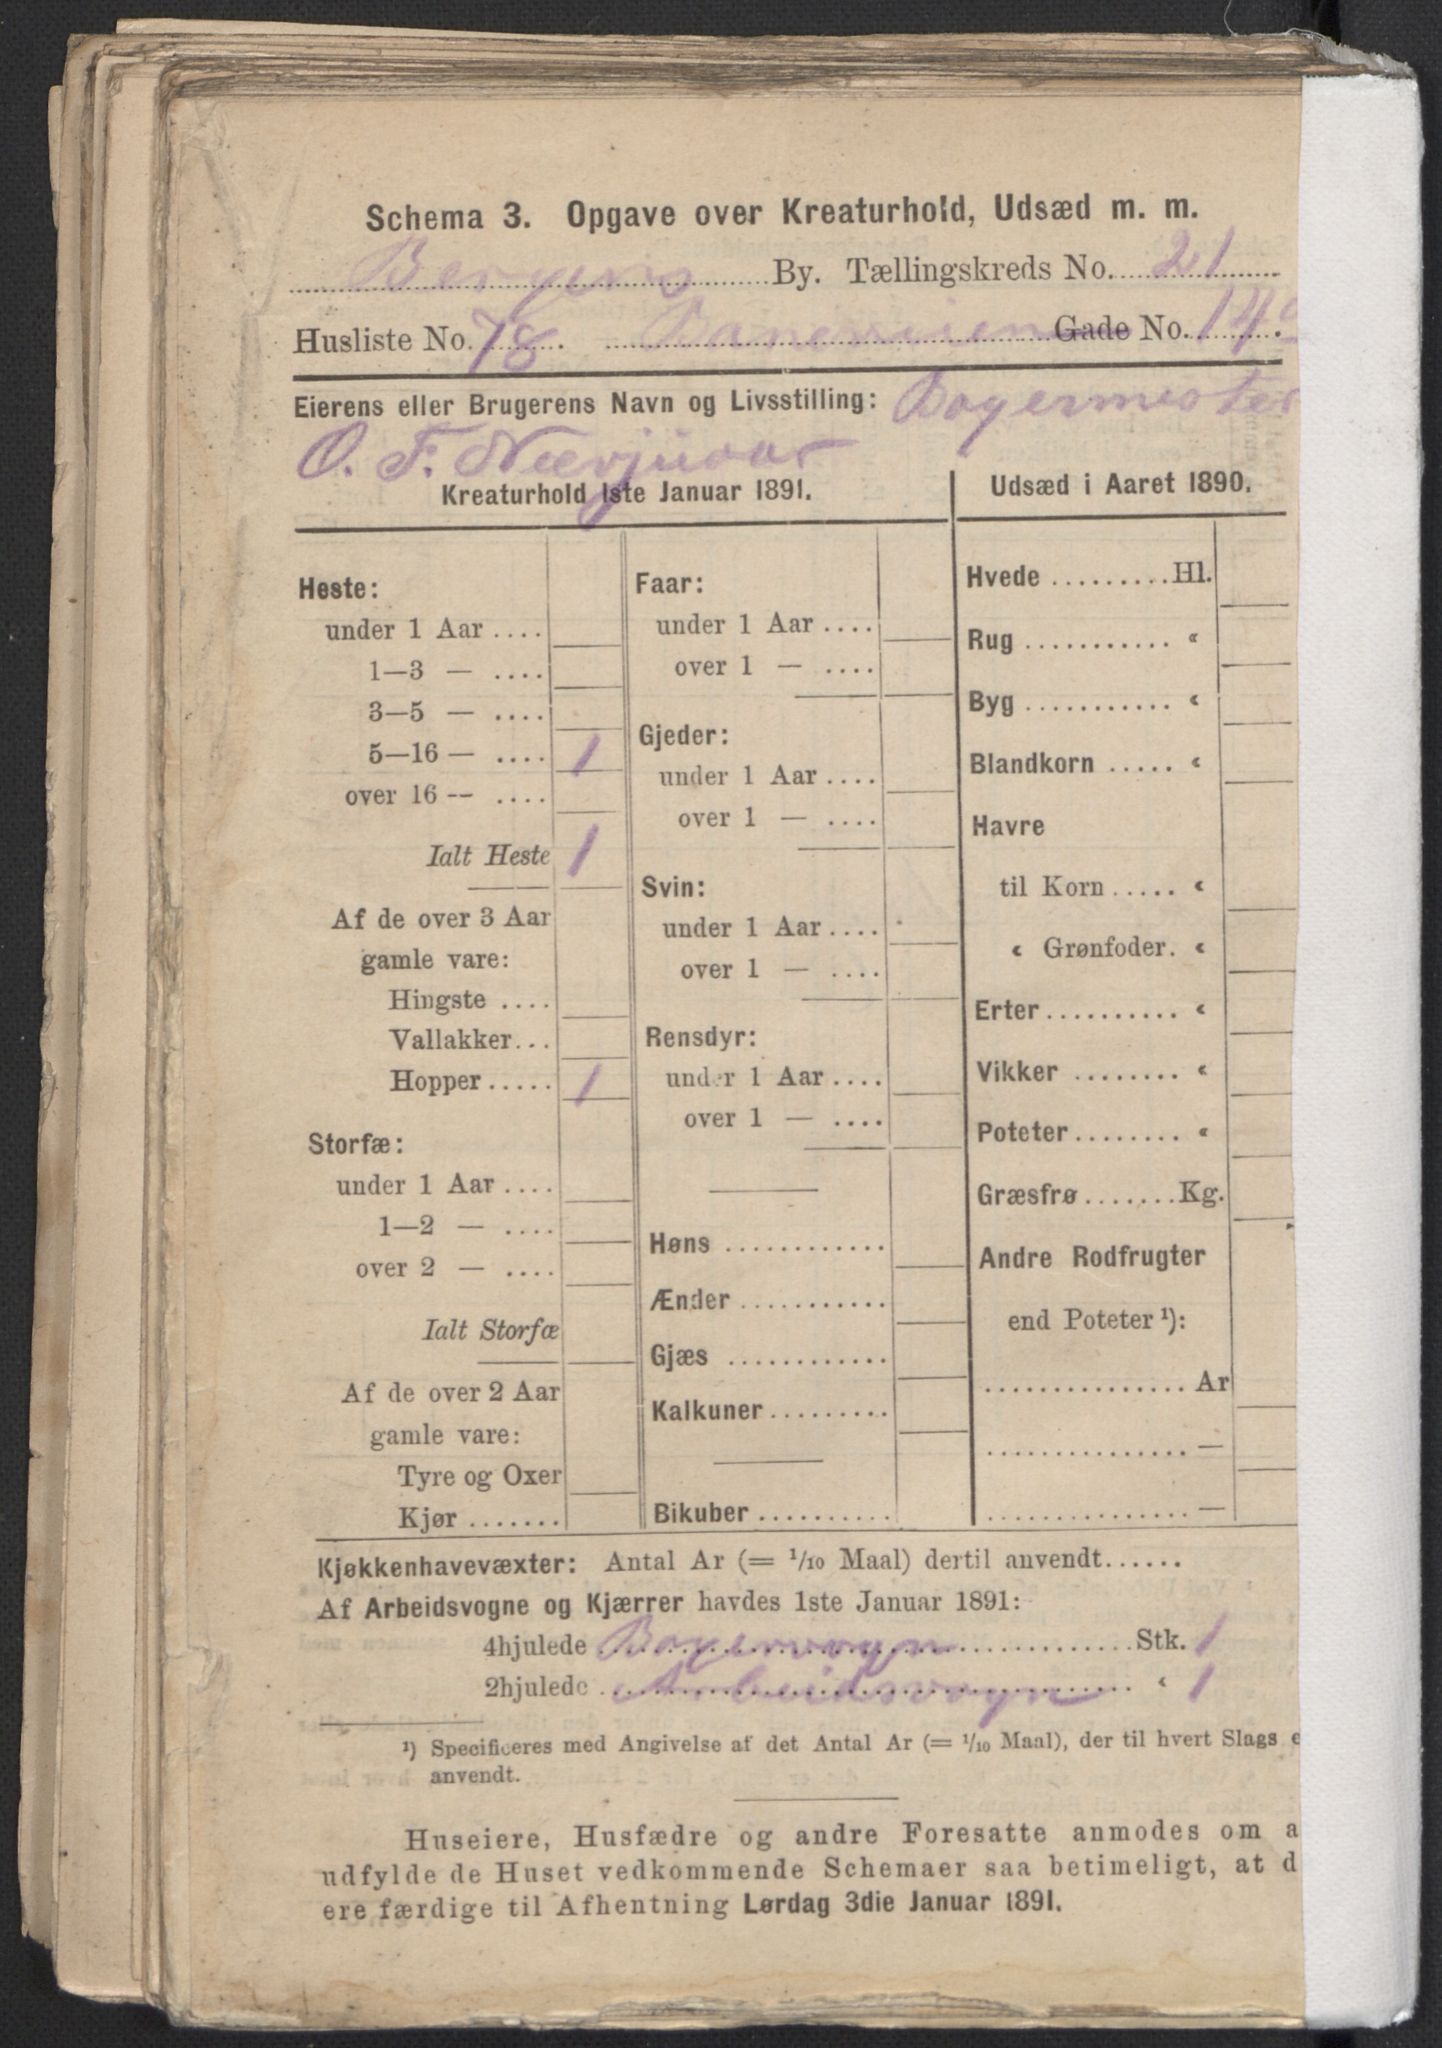 Schema 3. Opgave over Kreaturhold, Udsæd m. m.
Bergens By. Tællingskreds No. 21
Husliste No. 78. Baneveien Gade No. 14
Eierens eller Brugerens Navn og Livsstilling: Bagermester
O. F.
Kreaturhold 1ste Januar 1891.
Heste:
under 1 Aar ....
1—3 — ....
3—5 — ....
5—16 — .... 1
over 16 — ....
Ialt Heste 1
Af de over 3 Aar
gamle vare:
Hingste ....
Vallakker...
Hopper ..... 1
Storfæ:
under 1 Aar ....
1—2 — ....
over 2 — ....
Ialt Storfæ
Af de over 2 Aar
gamle vare:
Tyre og Oxer
Kjør .......
Faar:
under 1 Aar ....
over 1 — ....
Gjeder:
under 1 Aar ....
over 1 — ....
Svin:
under 1 Aar ....
over 1 — ....
Rensdyr:
under 1 Aar ....
over 1 — ....
Høns ............
Ænder ...........
Gjæs ............
Kalkuner.........
Bikuber ..........
Udsæd i Aaret 1890.
Hvede ......... Hl.
Rug ........... «
Byg ........... «
Blandkorn ..... «
Havre
til Korn ..... «
« Grønfoder. «
Erter .......... «
Vikker ........ «
Poteter ........ «
Græsfrø ....... Kg.
Andre Rodfrugter
end Poteter ¹):
............... Ar
............... —
............... —
Kjøkkenhavevæxter: Antal Ar (= 1/10 Maal) dertil anvendt......
Af Arbeidsvogne og Kjærrer havdes 1ste Januar 1891:
4hjulede Bagervogn Stk. 1
2hjulede Arbeidsvogn « 1
¹) Specificeres med Angivelse af det Antal Ar (= 1/10 Maal), der til hvert Slags e
anvendt.
Huseiere, Husfædre og andre Foresatte anmodes om a
udfylde de Huset vedkommende Schemaer saa betimeligt, at d
ere færdige til Afhentning Lørdag 3die Januar 1891.